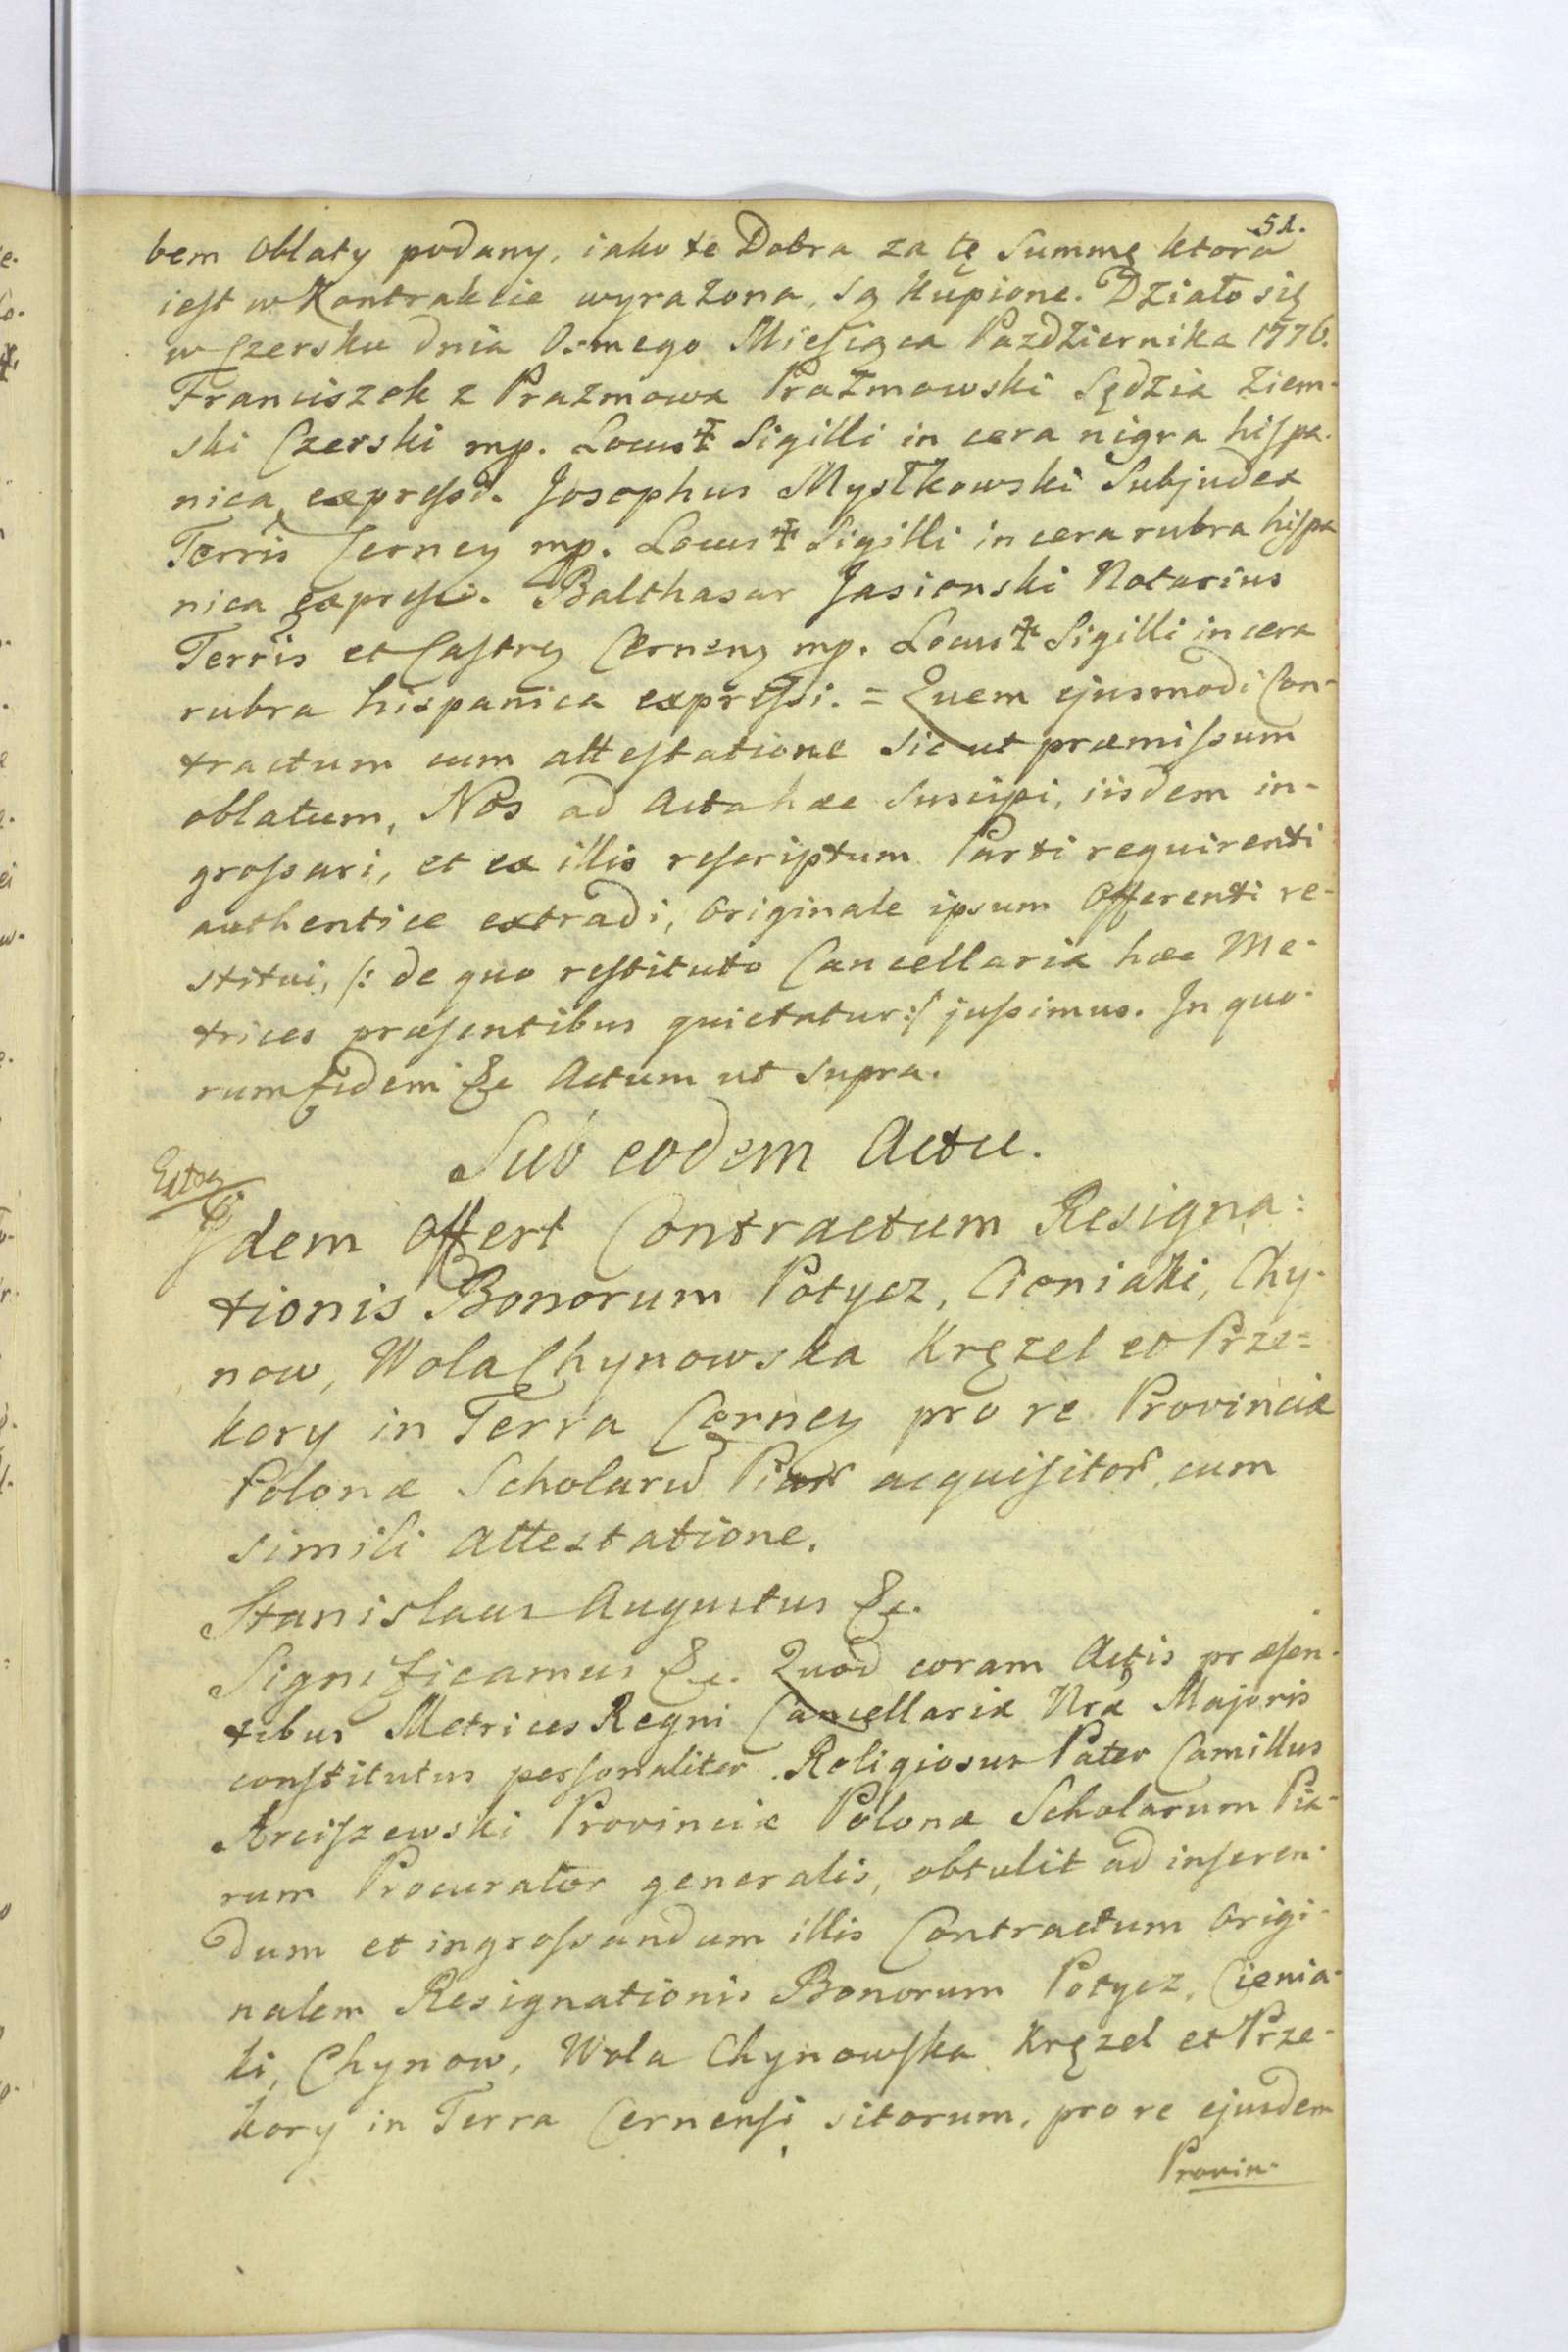 51.
bem Oblaty podany, iako te Dobra za tę Summę ktora
iest w Kontrakcie wyrażona, są kupione. Działo się
w Czersku dnia Osmego Miesiąca Pazdziernika 1776.
Franciszek z Prażmowa Prażmowski Sędzia Ziem-
ski Czerski mp. Locus ‡ Sigilli in cera nigra hispa-
nica express. Josephus Mystkowski Subjudex
Terris Cerney mp. Locus ‡ Sigilli in cera rubra hispa
nica expressi. Balthasar Jasionski Notarius
Terris et Castrẽ Cernenẽ mp. Locus ‡ Sigilli in cera
rubra hispanica expressi. = Quem ejusmodi Con-
tractum cum attestatione sic ut præmissum
oblatum, Nos ad Acta hæc suscipi, iisdem in-
grossari, et ex illis rescriptum Parti requirenti
authentice extradi, Originale ipsum Offerenti re-
stitui, /: de quo restituto Cancellaria hæc Me-
trices præsentibus quietatur :/ jussimus. In quo-
rum fidem &c Actum ut supra.
Sub eodem Actu.
Idem offert Contractum Resigna-
tionis Bonorum Potycz, Cieniaki, Chy-
now, Wola Chynowska Kręzel et Prze-
kory in Terra Cerney pro re Provinciæ
Polonæ Scholarũ Piar̃ acquisitor̃, cum
simili Attestatione.
Stanislaus Augustus &c.
Significamus &c. Quod coram Actis præsen-
tibus Metrices Regni Cancellariæ Nræ Majoris
constitutus personaliter Religiosus Pater Camillus
Arciszewski Provinciæ Polonæ Scholarum Pia-
rum Procurator generalis, obtulit ad inseren-
dum et ingrossandum illis Contractum Origi-
nalem Resignationis Bonorum Potycz, Cienia-
ki, Chynow, Wola Chynowska Kręzel et Prze-
kory in Terra Cernensi sitorum, pro re ejusdem
Provin-